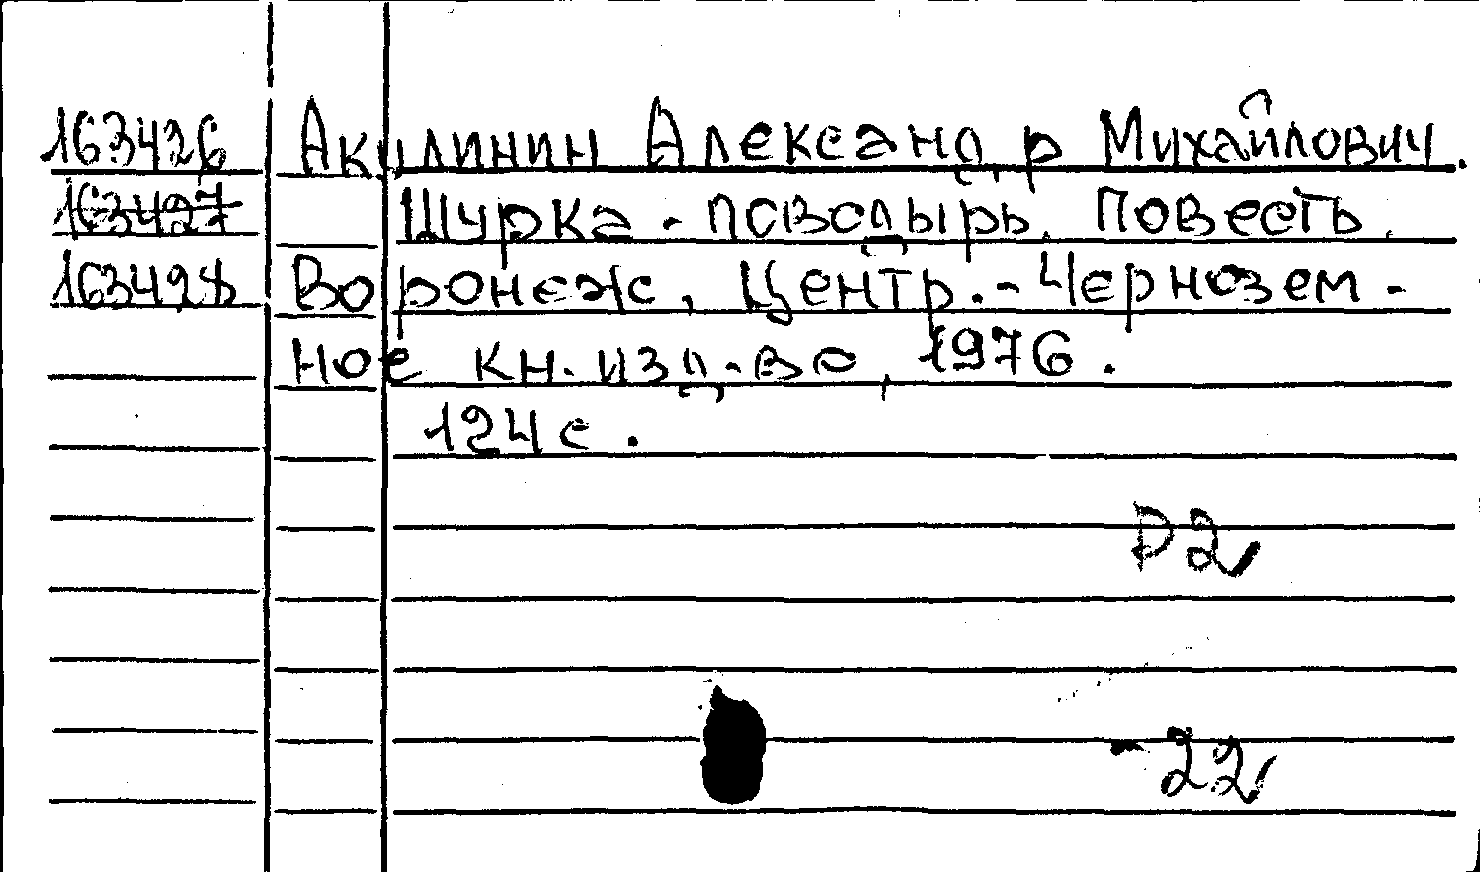 163426 Акулинин Александр Михайлович.
163427 Шурка - поводырь. Повесть.
163428 Воронеж, Центр.-Чернозем-
ное кн. изд-во, 1976.
124 с.
Р2
-22